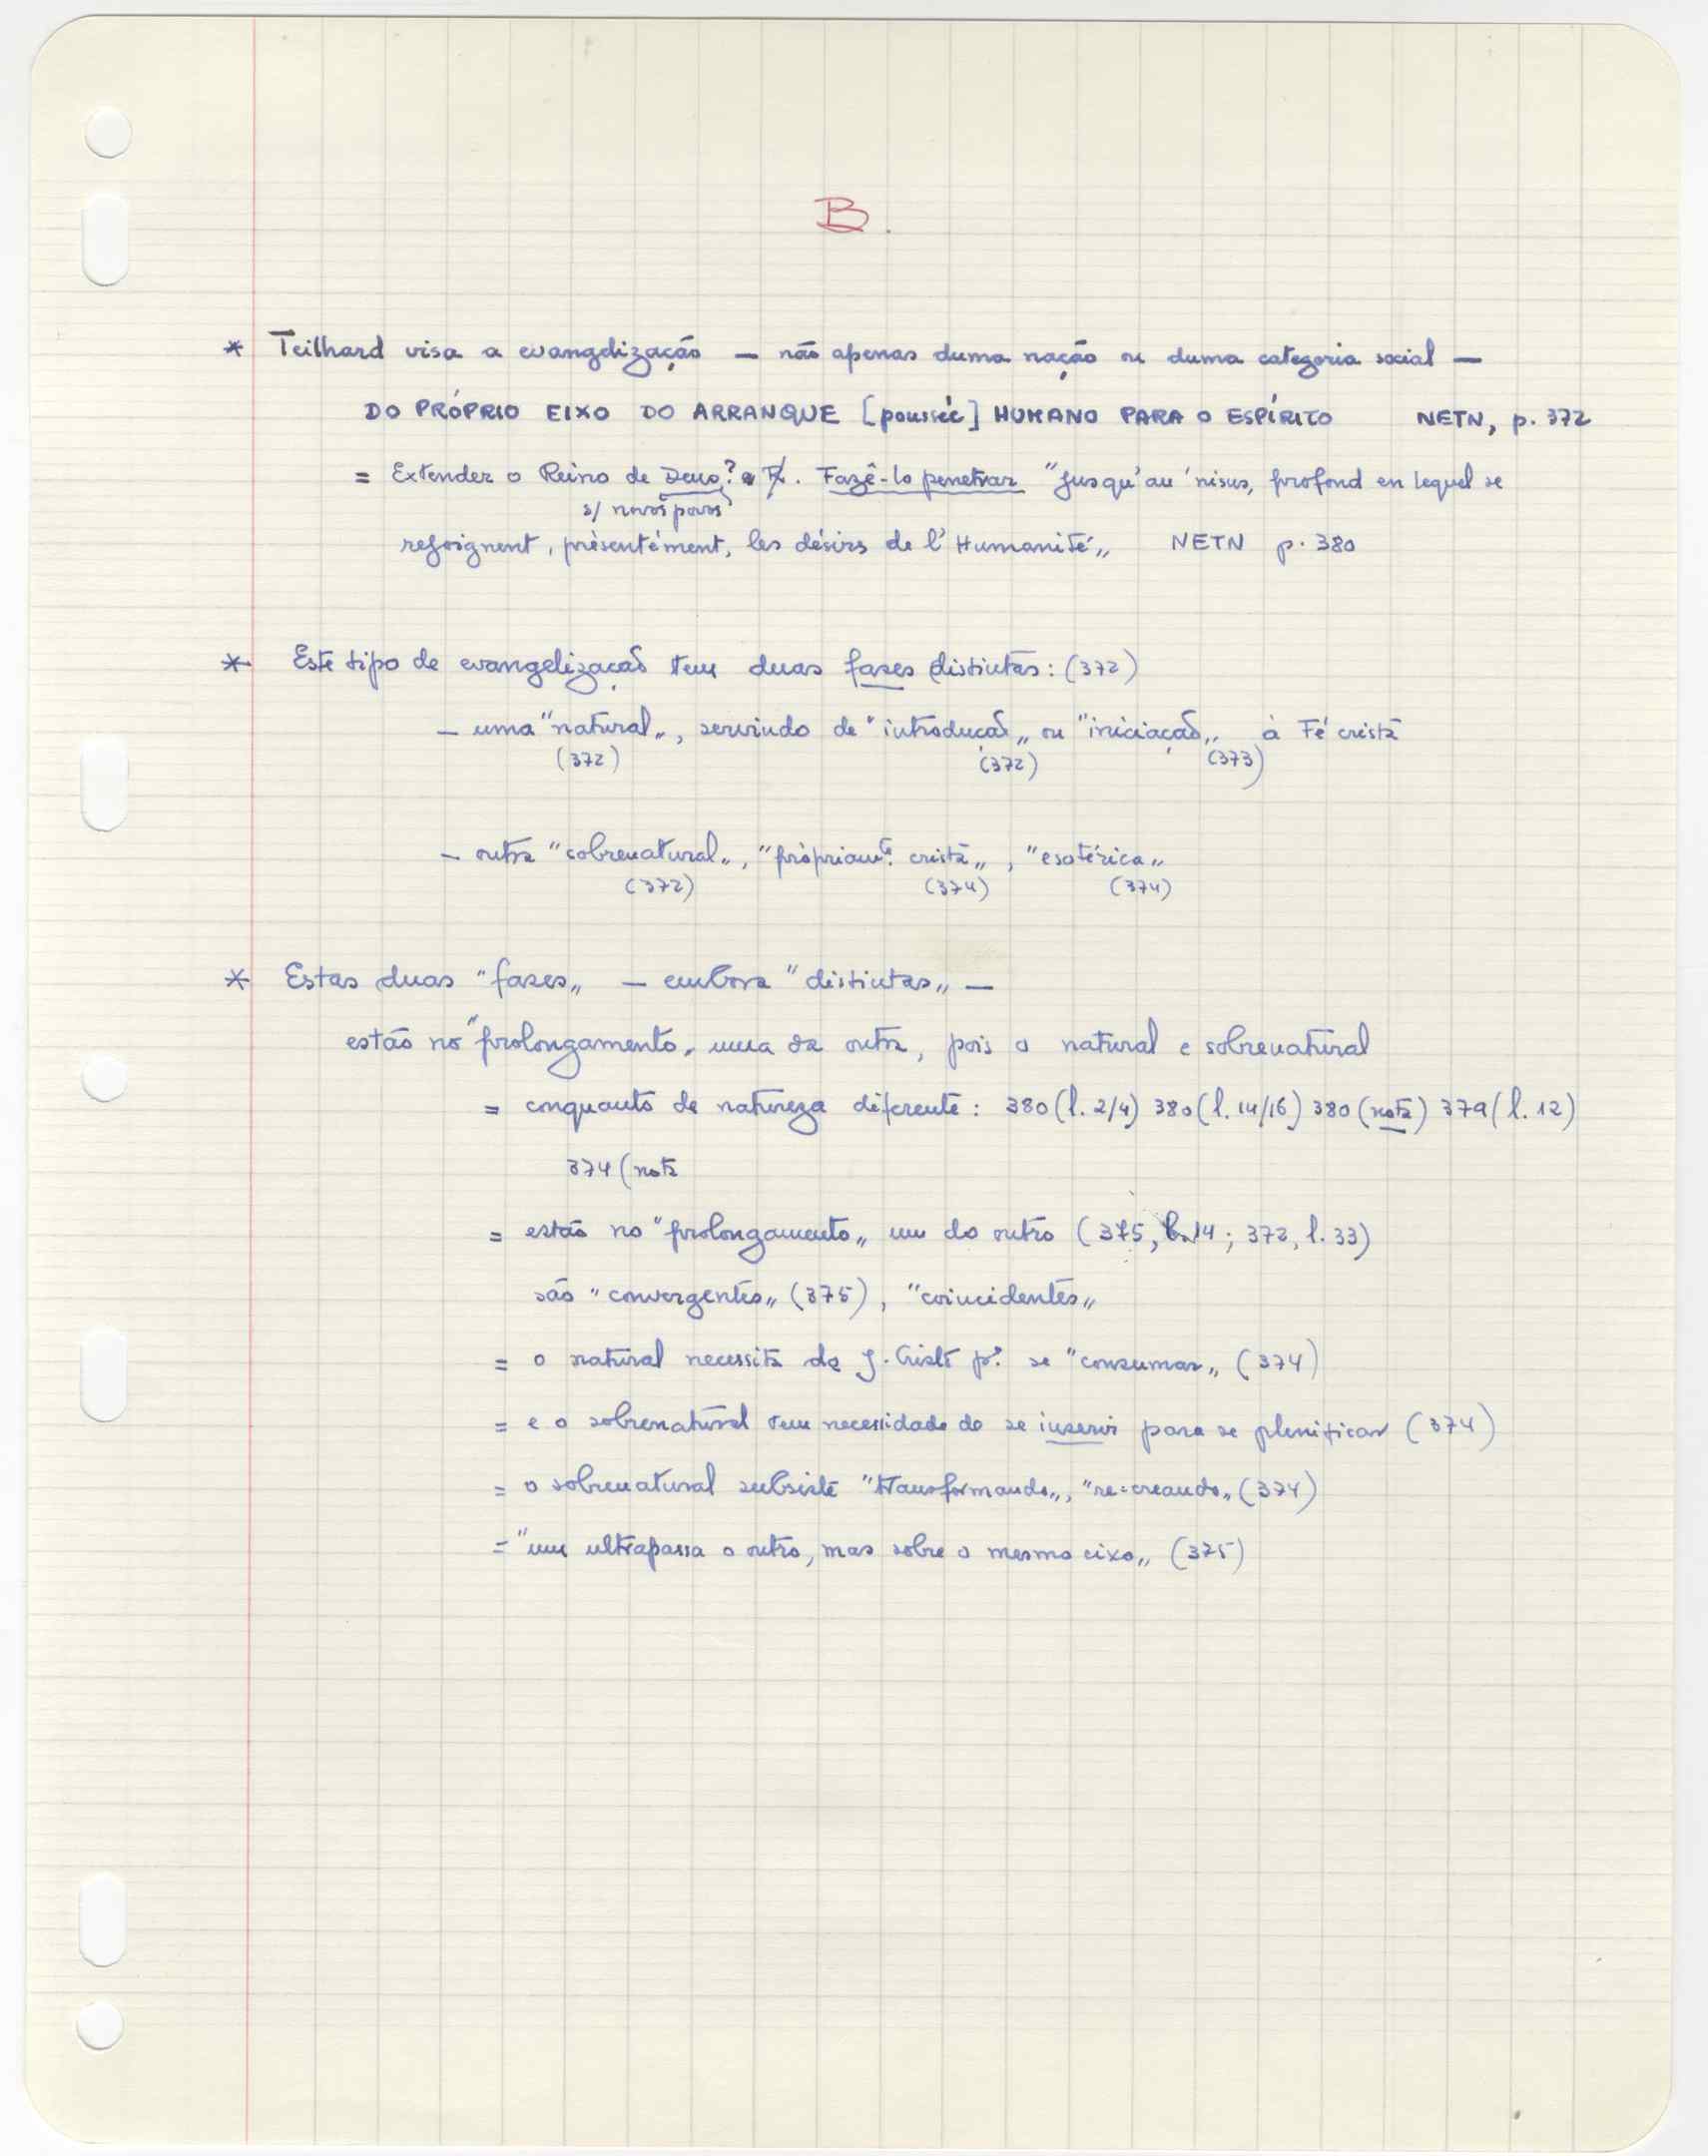 B.
* Teilhard visa a evangelização — não apenas duma nação ou duma categoria social —
DO PRÓPRIO EIXO DO ARRANQUE [poussée] HUMANO PARA O ESPÍRITO NETN, p. 372
= Extender o Reino de Deus? Fazê-lo penetrar "jusqu'au 'nisus, profond en lequel se
s/ novos povos
rejoignent, présentément, les désirs de l'Humanité„ NETN p. 380
* Este tipo de evangelização tem duas fases distintas: (372)
— uma "natural„, servindo de "introdução„ ou "iniciação„ à Fé cristã
(372) (372) (373)
— outra "sobrenatural„, "pròpriamte. cristã„, "esotérica„
(372) (374) (374)
* Estas duas "fases„ — embora "distintas„ —
estão no "prolongamento„ uma da outra, pois o natural e sobrenatural
= conquanto de natureza diferente: 380 (l. 2/4) 380 (l. 14/16) 380 (nota) 379 (l. 12)
374 (nota
= estão no "prolongamento„ um do outro (375, l. 14; 372, l. 33)
são "convergentes„ (375), "coincidentes„
= o natural necessita de J. Cristo pª. se "consumar„ (374)
= e o sobrenatural tem necessidade de se inserir para se plenificar (374)
= o sobrenatural subsiste "transformando„, "re-creando„ (374)
= "um ultrapassa o outro, mas sobre o mesmo eixo„ (375)